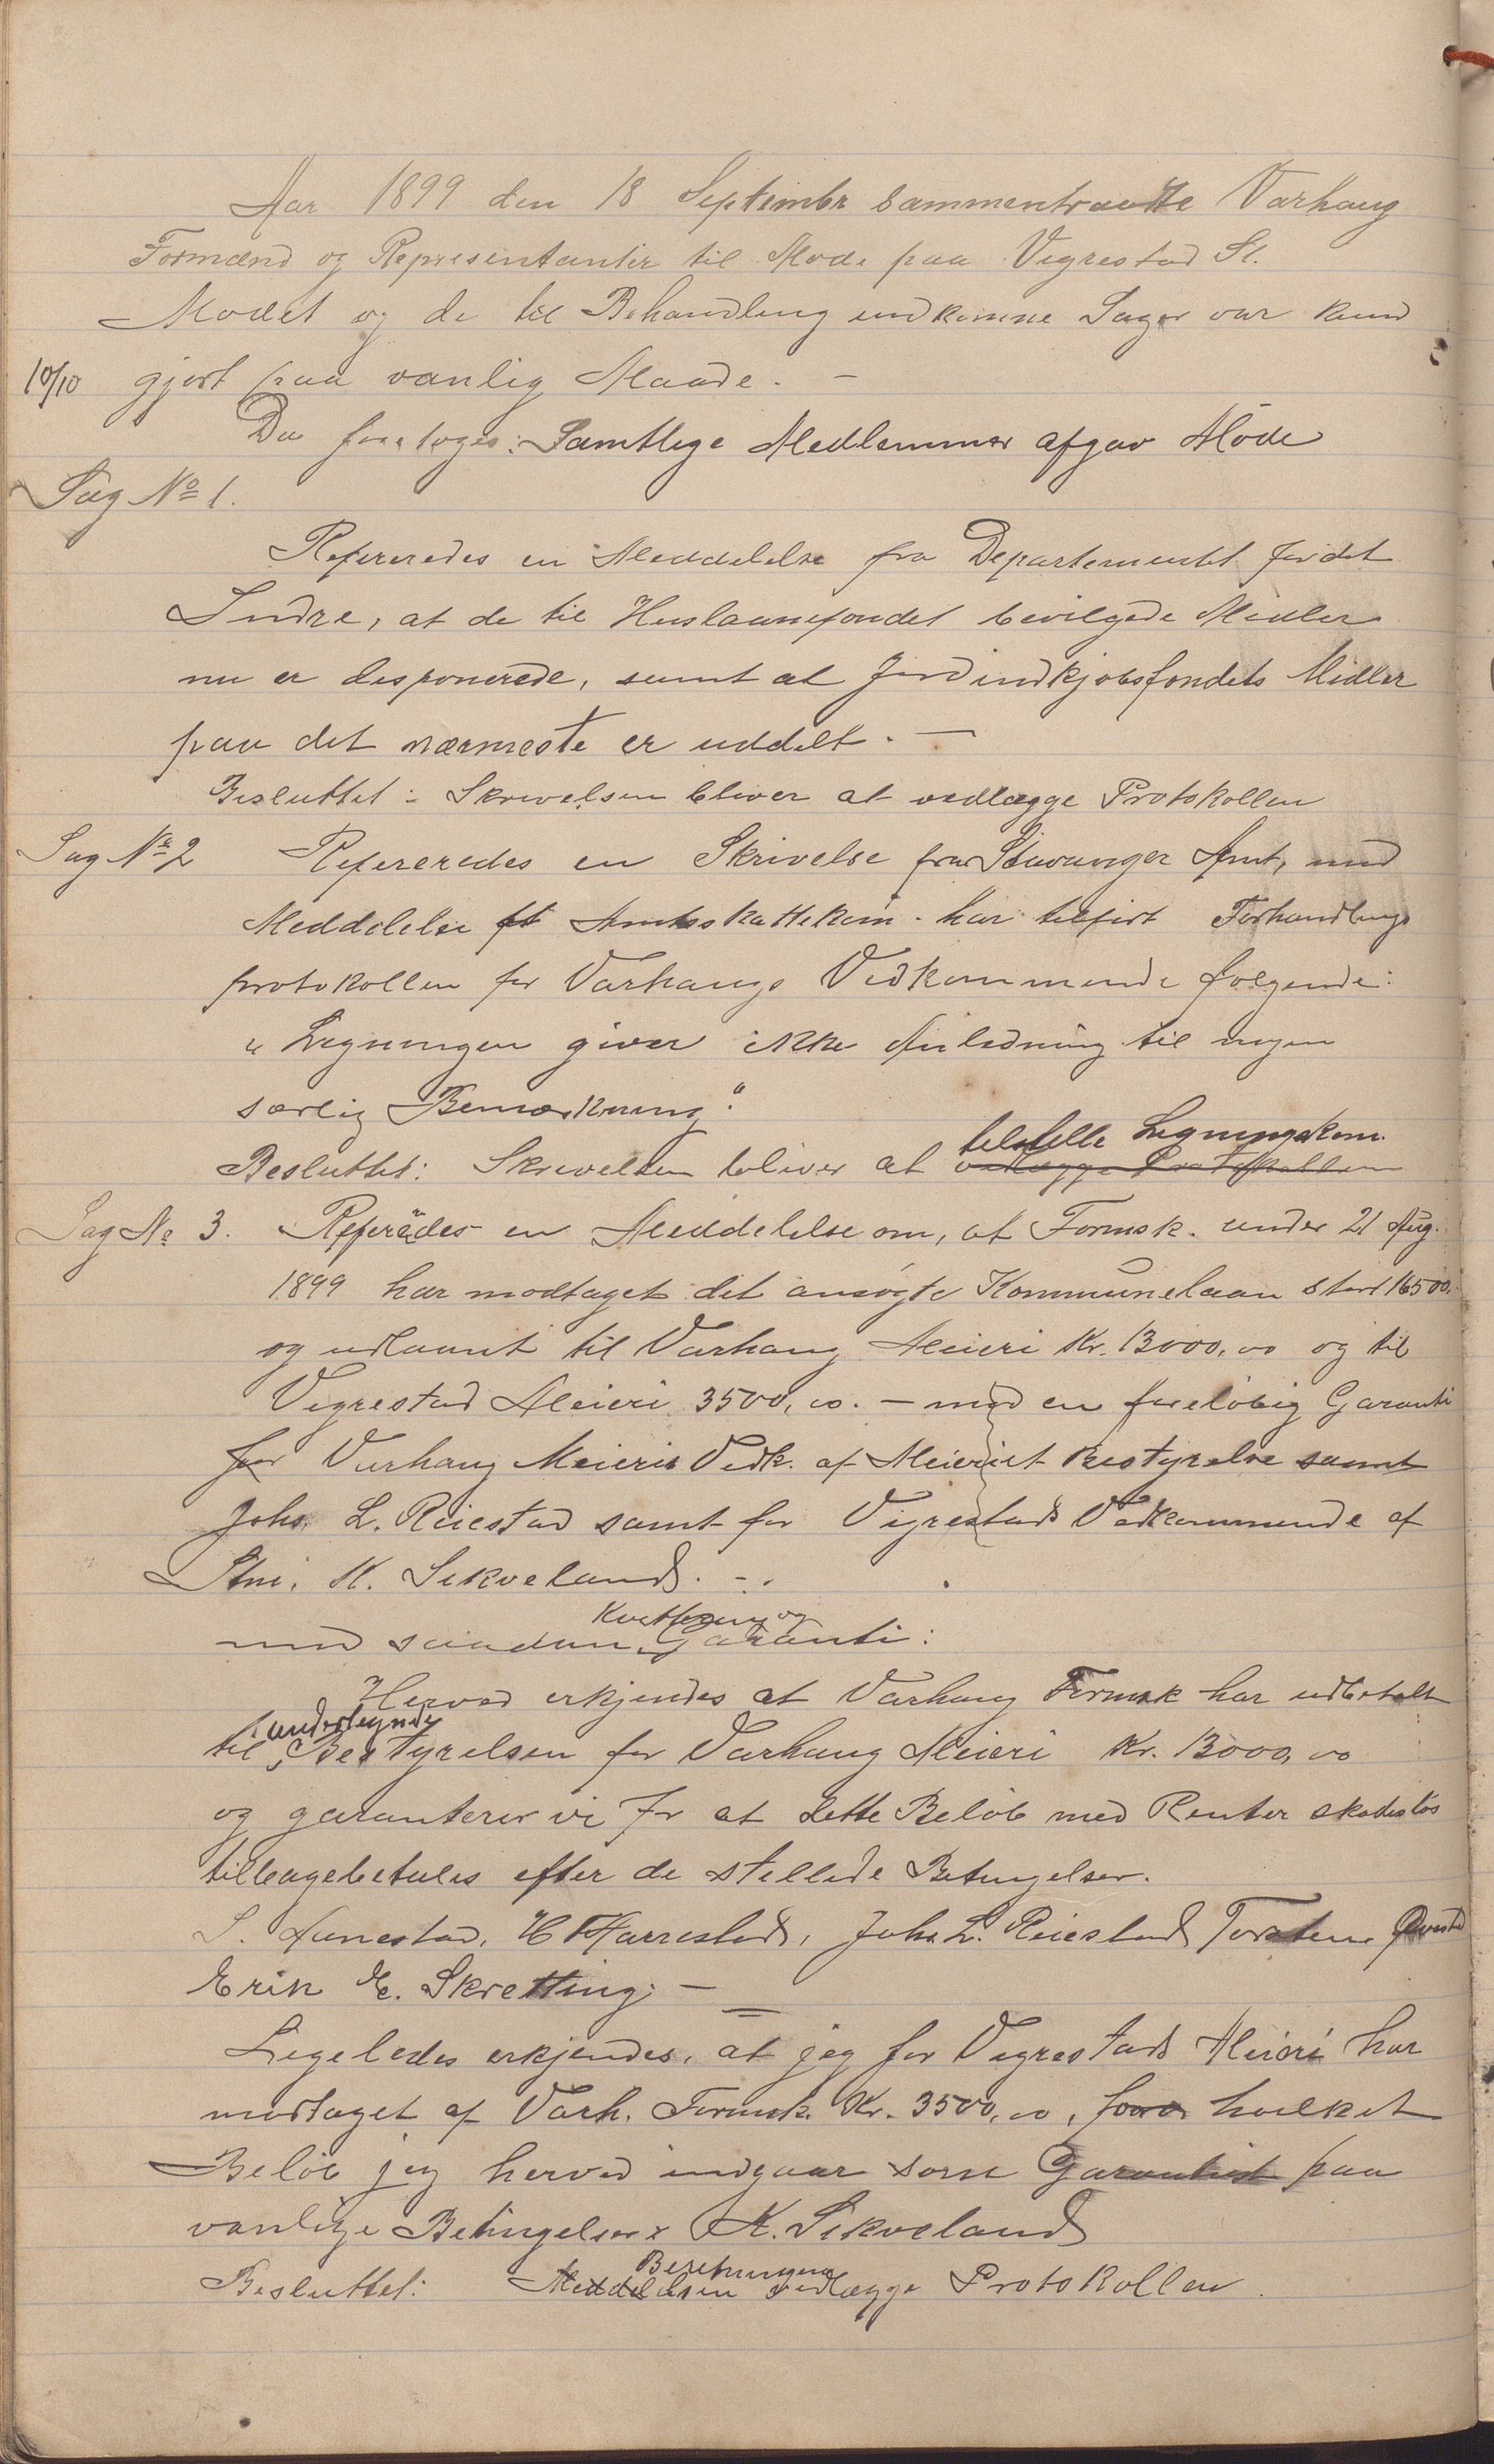 Aar 1899 den 18 Septembr sammentraadte Varhaug
Formænd og Representanter til Møde paa Vigrestad St.
Mødet og de til Behandling indkomne Sager var kund
10/10 gjort paa vanlig Maade. —
Da foretoges: Samtlige Medlemmer afgav Möde
Sag No 1.
Refereredes en Meddelelse fra Departementet for det
Indre, at de til Huslaanefondet bevilgede Midler
nu er disponerede, samt at Jordindkjøbsfondets Midler
paa det nærmeste er uddelt. —
Besluttet: Skrivelsen bliver at vedlægge Protokollen
Sag No 2 Refereredes en Skrivelse fra Stavanger Amt, med
Meddelelse at Amtsskattekom. har tilført Forhandlings
protokollen for Varhaugs Vedkommende følgende:
"Ligningen giver ikke Anledning til nogen
særlig Bemærkning".
tilstille Ligningskom.
Besluttet: Skrivelsen bliver at vedlægge Protokollen
Sag No 3. Refereredes en Meddelelse om, at Formsk. under 21 Aug.
1899 har modtaget det ansøgte Kommunelaan stort 16500.
og udlaant til Varhaug Meieri Kr. 13000,00 og til
Vigrestad Meieri 3500,00. — med en foreløbig Garanti
for Varhaug Meieris Vedk. af Meieriet Bestyrelse samt
Johs. L. Reiestad samt for Vigrestads Vedkommende af
K. Sikveland. -.
Kvittering og
med saadan Garanti:
Herved erkjendes at Varhaug Formsk har udbetalt
undertegnede
til Bestyrelsen for Varhaug Meieri Kr. 13000,00
og garanterer vi for at dette Beløb med Renter skadesløs
tilbagebetales efter de stillede Betingelser.
S. Aanestad, H Harrestad, Johs. L. Reiestad Torsten
Erik E. Skretting. —
Ligeledes erkjendes, at jeg for Vigrestads Meieri har
modtaget af Varh. Formsk. Kr. 3500,00, for hvilket
Beløb jeg herved indgaar som Garantist paa
vanlige Betingelser K. Sikveland
Beretningen
Besluttet: Meddelelsen vedlægge Protokollen.